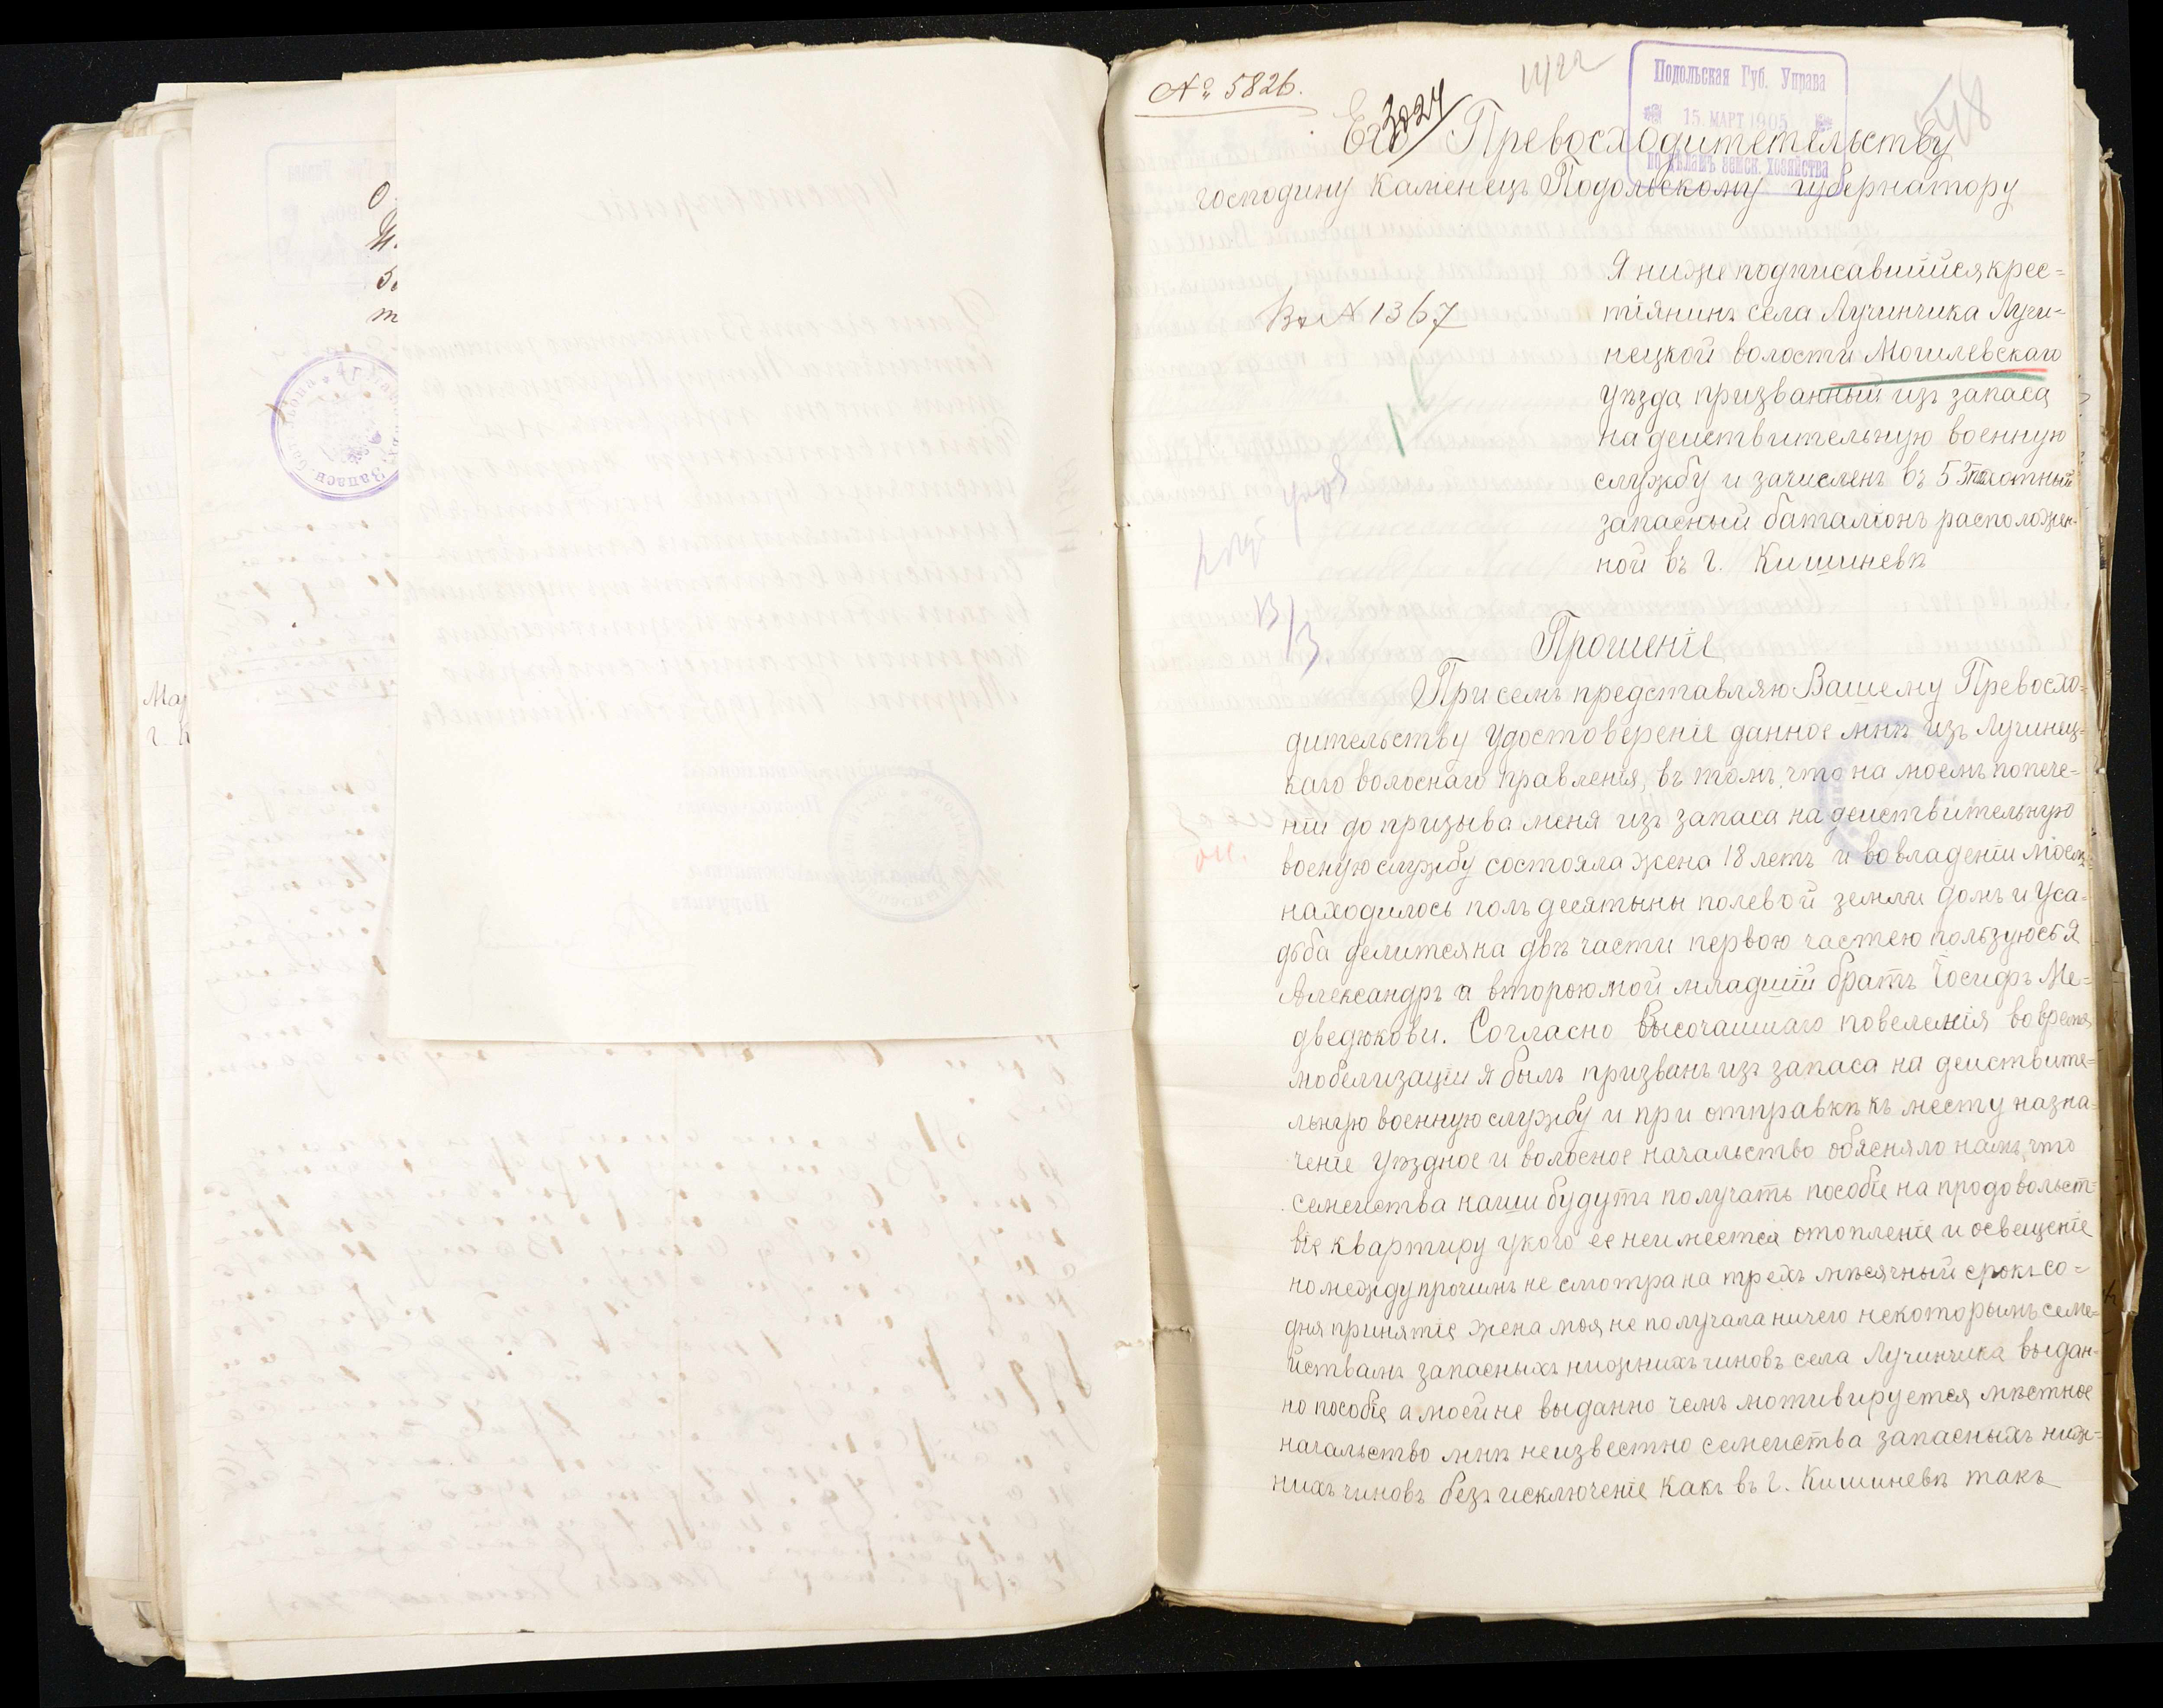 № 5826.
3224
Подольская Губ. Управа
15. МАРТ 1905
по дѣламъ земск. хозяйства
Его Превосходитетельству
господину Каменецъ Подольскому губернатору
Вх № 1367
Я ниже подписавшийся крес=
тіянинъ села Лучинчика Лучи=
нецкой волости Могилевскаго
уѣзда призванный изъ запаса
на действительную военную
службу и зачисленъ въ 53 пѣхотный
запасный баталіонъ расположен-
ной въ г. Кишиневѣ
Прошеніе
При семъ представляю Вашему Превосхо=
дительству удостовереніе данное мнѣ изъ Лучинец=
каго волоснаго правленія, въ томъ, что на моемъ попече=
ніи до призыва меня изъ запаса на действительную
военую службу состояла жена 18 летъ и во владеніи моемъ
находилось полъ десятыны полевой земли домъ и Уса-
дьба делится на двѣ части первою частею пользуюсь Я
Александръ а второю мой младшій братъ Іосифъ Ме=
дведюкови. Согласно Высочаишаго повеленія во время
мобелизаціи я былъ призванъ изъ запаса на действите=
льную военную службу и при отправкѣ къ месту назна-
ченіе уѣздное и волосное начальство обясняло намъ, что
семейства наши будутъ получать пособіе на продовольст=
віе квартиру у кого ее неимеется отопленіе и освещеніе
но между прочимъ не смотра на трехъ мѣсячный срокъ со=
дня принятіе жена моя не получала ничего некоторымъ семе=
йствамъ запасныхъ нижнихъ чиновъ села Лучинчика выдан-
но пособіе а моей не выданно чемъ мотивируется мѣстное
начальство мнѣ неизвестно семейства запасныхъ ниж=
нихъ чиновъ безъ исключеніе какъ въ г. Кишиневѣ такъ